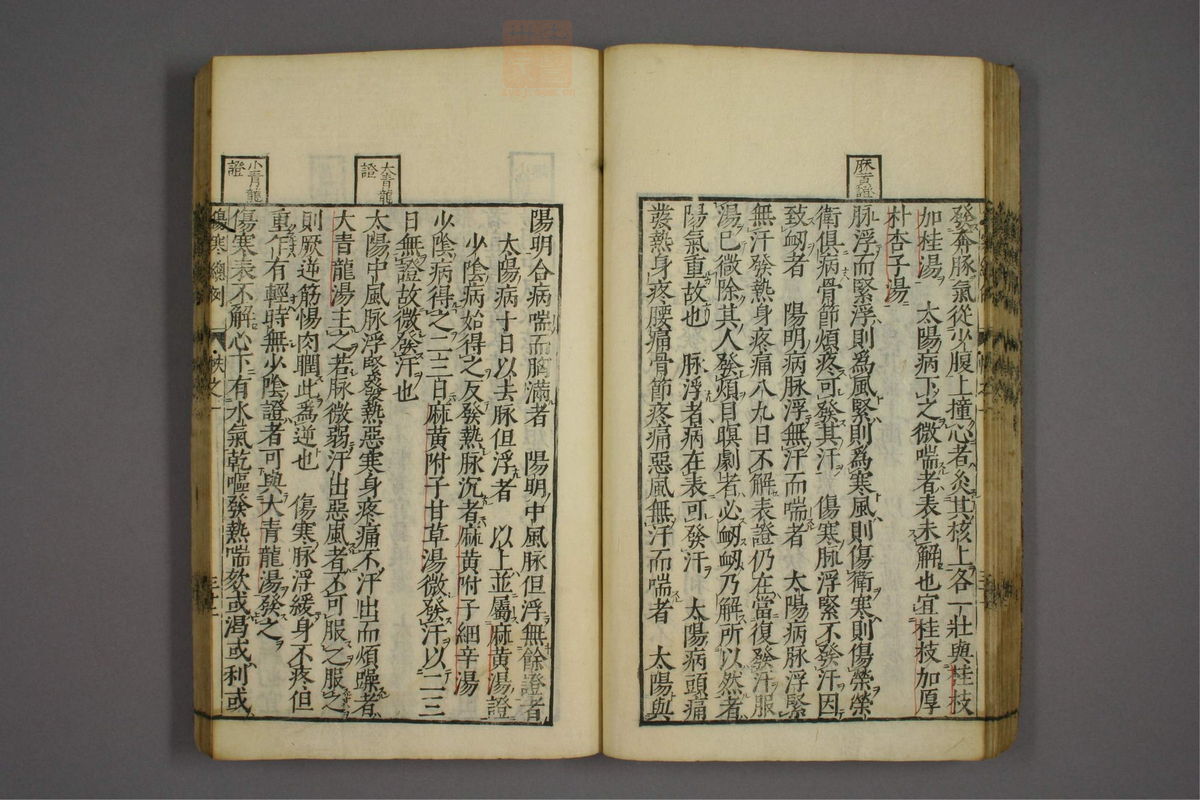 麻黃證
發奔豚氣從少腹上撞心者灸其核上各一壯與桂枝
加桂湯　太陽病下之微喘者表未解也宜桂枝加厚
朴杏子湯
脉浮而緊浮則爲風緊則爲寒風則傷衛寒則傷榮榮
衛俱病骨節煩疼可發其汗　傷寒脉浮緊不發汗因
致衂者　陽明病脉浮無汗而喘者　太陽病脉浮緊
無汗發熱身疼痛八九日不解表證仍在當復發汗服
湯已微除其人發煩目瞑劇者必衂衂乃解所以然者
陽氣重故也　脉浮者病在表可發汗　太陽病頭痛
發熱身疼腰痛骨節疼痛惡風無汗而喘者　太陽與
陽明合病喘而胸滿者　陽明中風脉但浮無餘證者
太陽病十日以去脉但浮者　以上並屬麻黃湯證
少陰病始得之反發熱脉沉者麻黃附子細辛湯
少陰病得之二三日麻黃附子甘草湯微發汗以二三
日無證故微發汗也
大青龍證
太陽中風脉浮緊發熱惡寒身疼痛不汗出而煩躁者
大青龍湯主之若脉微弱汗出惡風者不可服之服之
則厥逆筋惕肉瞤此爲逆也　傷寒脉浮緩身不疼但
重乍有輕時無少陰證者可與大青龍湯發之
小青龍證
傷寒表不解心下有水氣乾嘔發熱喘欬或渴或利或
傷寒總例　卷之一　三十一